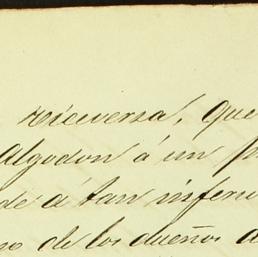 viceversa, que
Algodon á un p
de á tan inferio
no de los dueños d